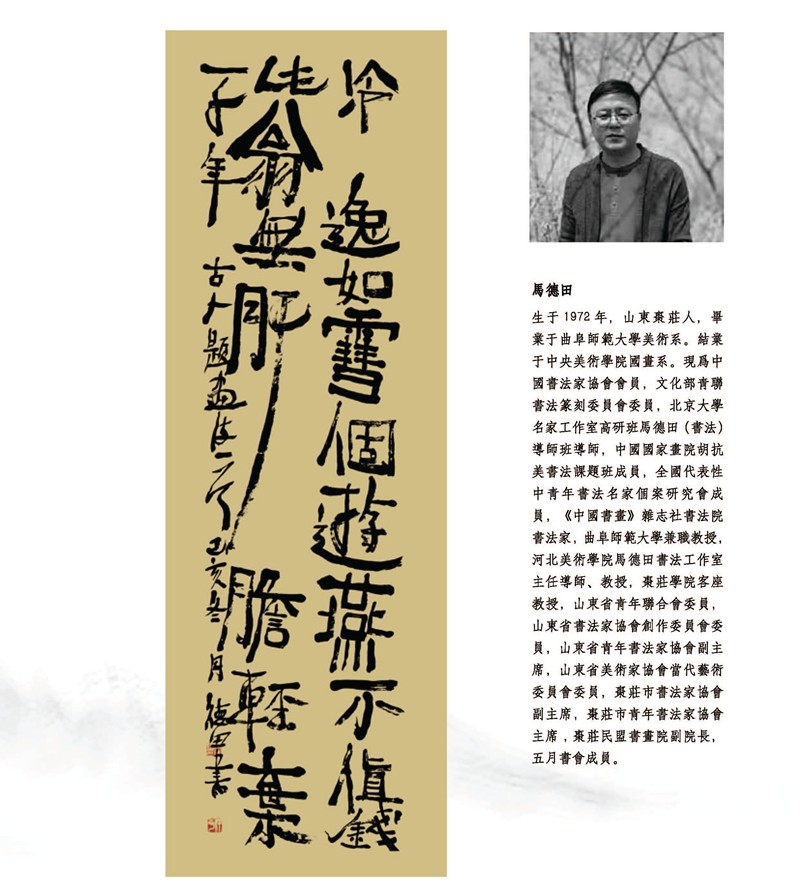 冷逸如雪個遊燕不值錢
此翁無肝膽輕棄
一千年
古人題畫詩一首 己亥冬月 德田書
馬德田
生于1972年，山東棗莊人，畢
業于曲阜師範大學美術系。結業
于中央美術學院國畫系。現爲中
國書法家協會會員，文化部青聯
書法篆刻委員會委員，北京大學
名家工作室高研班馬德田（書法）
導師班導師，中國國家畫院胡抗
美書法課題班成員，全國代表性
中青年書法名家個案研究會成
員，《中國書畫》雜志社書法院
書法家，曲阜師範大學兼職教授，
河北美術學院馬德田書法工作室
主任導師、教授，棗莊學院客座
教授，山東省青年聯合會委員，
山東省書法家協會創作委員會委
員，山東省青年書法家協會副主
席，山東省美術家協會當代藝術
委員會委員，棗莊市書法家協會
副主席，棗莊市青年書法家協會
主席，棗莊民盟書畫院副院長，
五月書會成員。